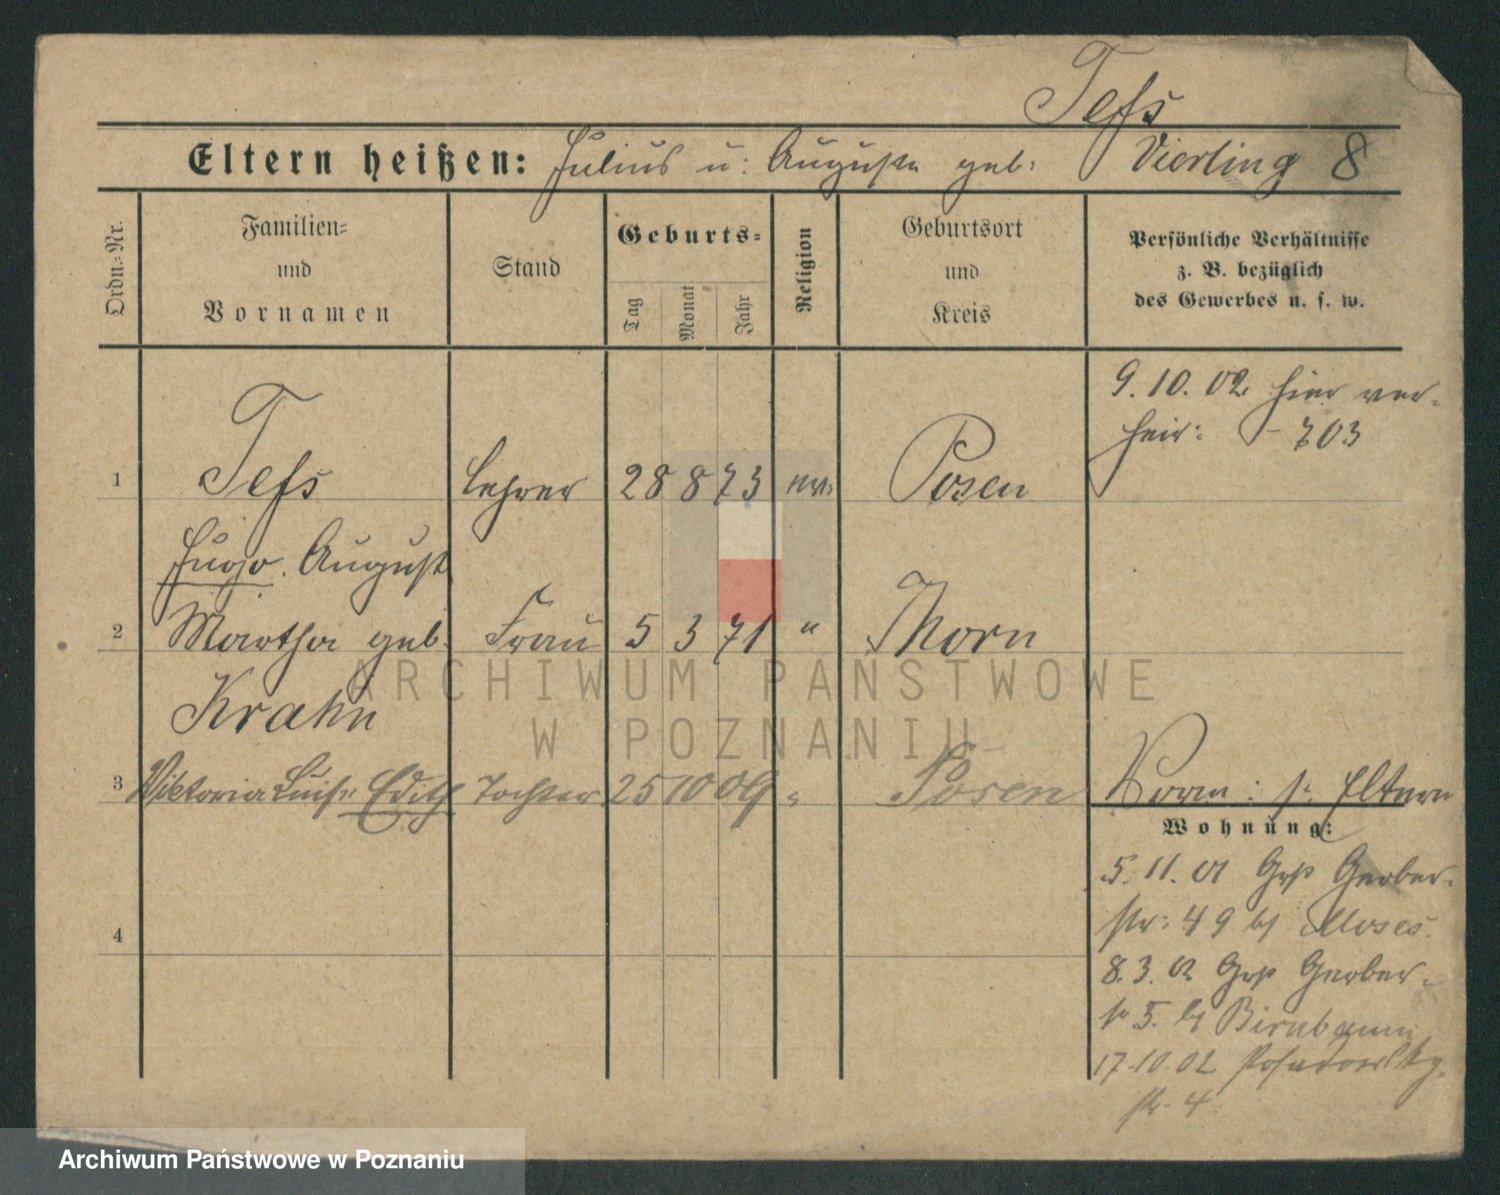 Tefs
Eltern heißen: Julius u: Auguste geb: Vierling 8
Ordn.-Nr.
Familien-
und
Vornamen
Stand
Geburts-
Tag
Monat
Jahr
Religion
Geburtsort
und
Kreis
Persönliche Verhältnisse
z. B. bezüglich
des Gewerbes u. s. w.
9.10.02. hier ver-
heir: - 703
1 Tefs Lehrer 28 8 73 ev. Posen
Hugo August
2 Martha geb. Frau 5 3 71 " Thorn
Krahn
3 Viktoria Luise Edith Tochter 25 10 04 " Posen
Eltern
Wohnung:
5.11.01 Grß Gerber-
str: 49 bei Moses.
8.3.02 Grß Gerber-
str 5. bei Birnbaum
17.10.02
str. 4
4
ARCHIWUM PAŃSTWOWE
W POZNANIU
Archiwum Państwowe w Poznaniu